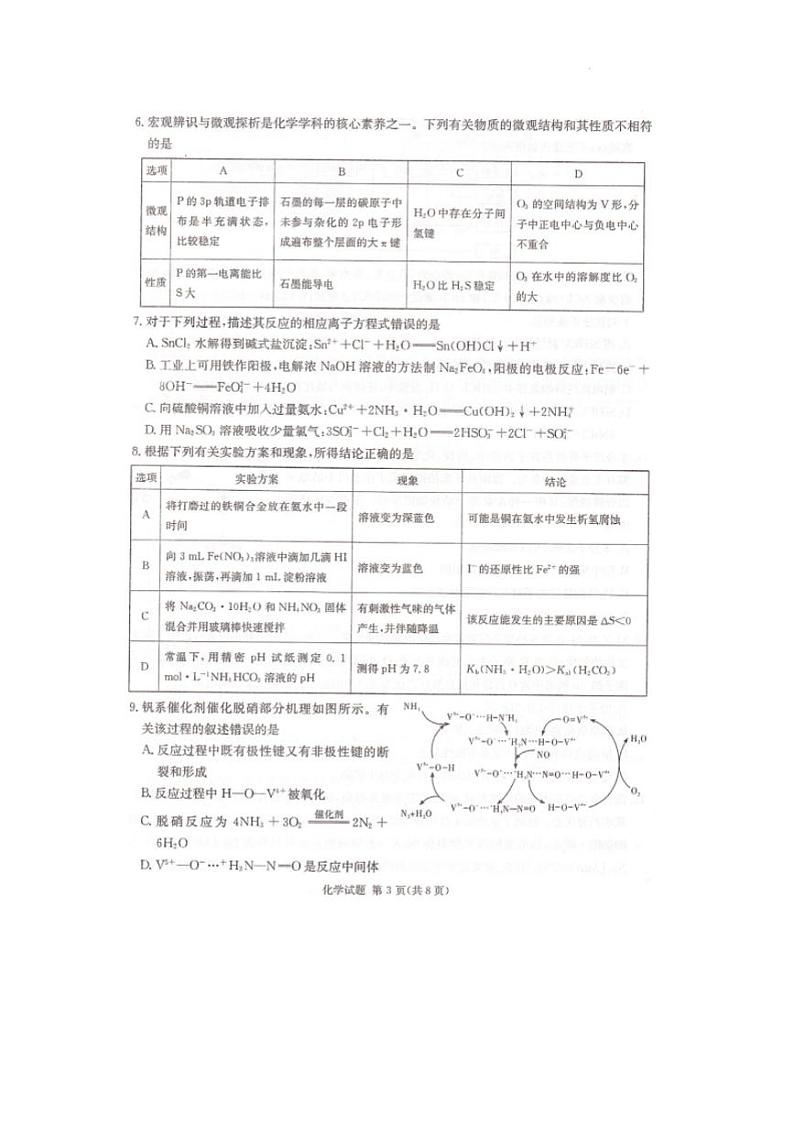 6. 宏观辨识与微观探析是化学学科的核心素养之一。下列有关物质的微观结构和其性质不相符
的是
选项 A B C D
微观结构 P的3p轨道电子排布是半充满状态,比较稳定 石墨的每一层的碳原子中未参与杂化的2p电子形成遍布整个层面的大π键 H₂O中存在分子间氢键 O₃的空间结构为V形,分子中正电中心与负电中心不重合
性质 P的第一电离能比S大 石墨能导电 H₂O比H₂S稳定 O₃在水中的溶解度比O₂的大
7. 对于下列过程,描述其反应的相应离子方程式错误的是
A. SnCl₂水解得到碱式盐沉淀:Sn²⁺+Cl⁻+H₂O══Sn(OH)Cl↓+H⁺
B. 工业上可用铁作阳极,电解浓NaOH溶液的方法制Na₂FeO₄,阳极的电极反应:Fe-6e⁻+
8OH⁻══FeO₄²⁻+4H₂O
C. 向硫酸铜溶液中加入过量氨水:Cu²⁺+2NH₃·H₂O══Cu(OH)₂↓+2NH₄⁺
D. 用Na₂SO₃溶液吸收少量氯气:3SO₃²⁻+Cl₂+H₂O══2HSO₃⁻+2Cl⁻+SO₄²⁻
8. 根据下列有关实验方案和现象,所得结论正确的是
选项 实验方案 现象 结论
A 将打磨过的铁铜合金放在氨水中一段时间 溶液变为深蓝色 可能是铜在氨水中发生析氢腐蚀
B 向3 mL Fe(NO₃)₃溶液中滴加几滴HI溶液,振荡,再滴加1 mL淀粉溶液 溶液变为蓝色 I⁻的还原性比Fe²⁺的强
C 将Na₂CO₃·10H₂O和NH₄NO₃固体混合并用玻璃棒快速搅拌 有刺激性气味的气体产生,并伴随降温 该反应能发生的主要原因是ΔS<0
D 常温下,用精密pH试纸测定0.1 mol·L⁻¹NH₄HCO₃溶液的pH 测得pH为7.8 Kb(NH₃·H₂O)>Ka1(H₂CO₃)
9. 钒系催化剂催化脱硝部分机理如图所示。有
关该过程的叙述错误的是
A. 反应过程中既有极性键又有非极性键的断
裂和形成
B. 反应过程中H—O—V⁴⁺被氧化
C. 脱硝反应为4NH₃+3O₂ 催化剂══ 2N₂+
6H₂O
D. V⁵⁺—O⁻…⁺H₃N—N═O是反应中间体
NH₃
V⁵⁺-O⁻…H-N⁺H₃
O=V⁵⁺
V⁵⁺-O⁻…⁺H₃N…H-O-V⁴⁺
NO
H₂O
V⁵⁺-O-H
V⁵⁺-O⁻…⁺H₃N…N=O…H-O-V⁴⁺
O₂
N₂+H₂O
V⁵⁺-O⁻…⁺H₃N-N=O
H-O-V⁴⁺
化学试题 第3页(共8页)